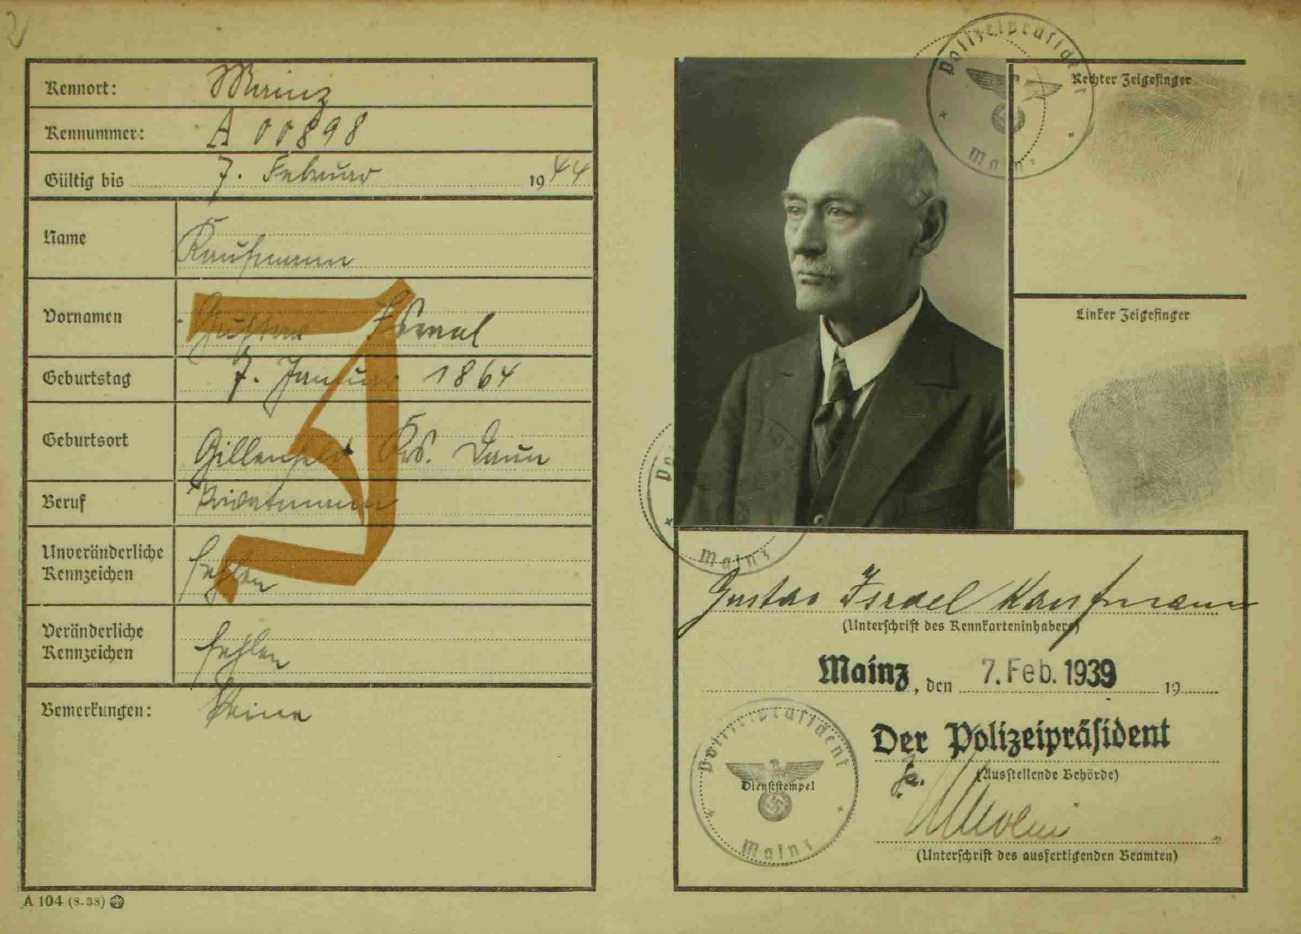 2
Kennort: Mainz
Kennummer: A 00898
Gültig bis 7. Februar 1944
Name Kaufmann
Vornamen Gustav Israel
Geburtstag 7. Januar 1864
Geburtsort Gillenfeld Krs. Daun
Beruf Privatmann
Unveränderliche
Kennzeichen fehlen
Veränderliche
Kennzeichen fehlen
Bemerkungen: Keine
J
A 104 (8.38)
Polizeipräsident
Mainz
Rechter Zeigefinger
Linker Zeigefinger
Mainz
Gustav Israel Kaufmann
(Unterschrift des Kennkarteninhabers)
Mainz, den 7. Feb. 1939 19
Der Polizeipräsident
(Ausstellende Behörde)
Polizeipräsident
Dienststempel
Mainz
(Unterschrift des ausfertigenden Beamten)